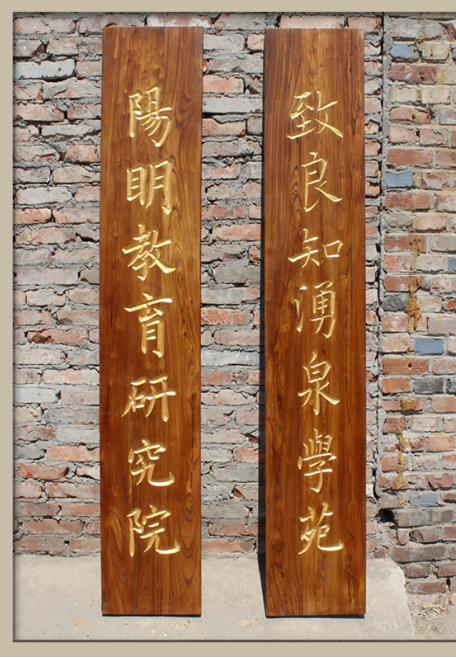 致良知湧泉學苑
陽明教育研究院